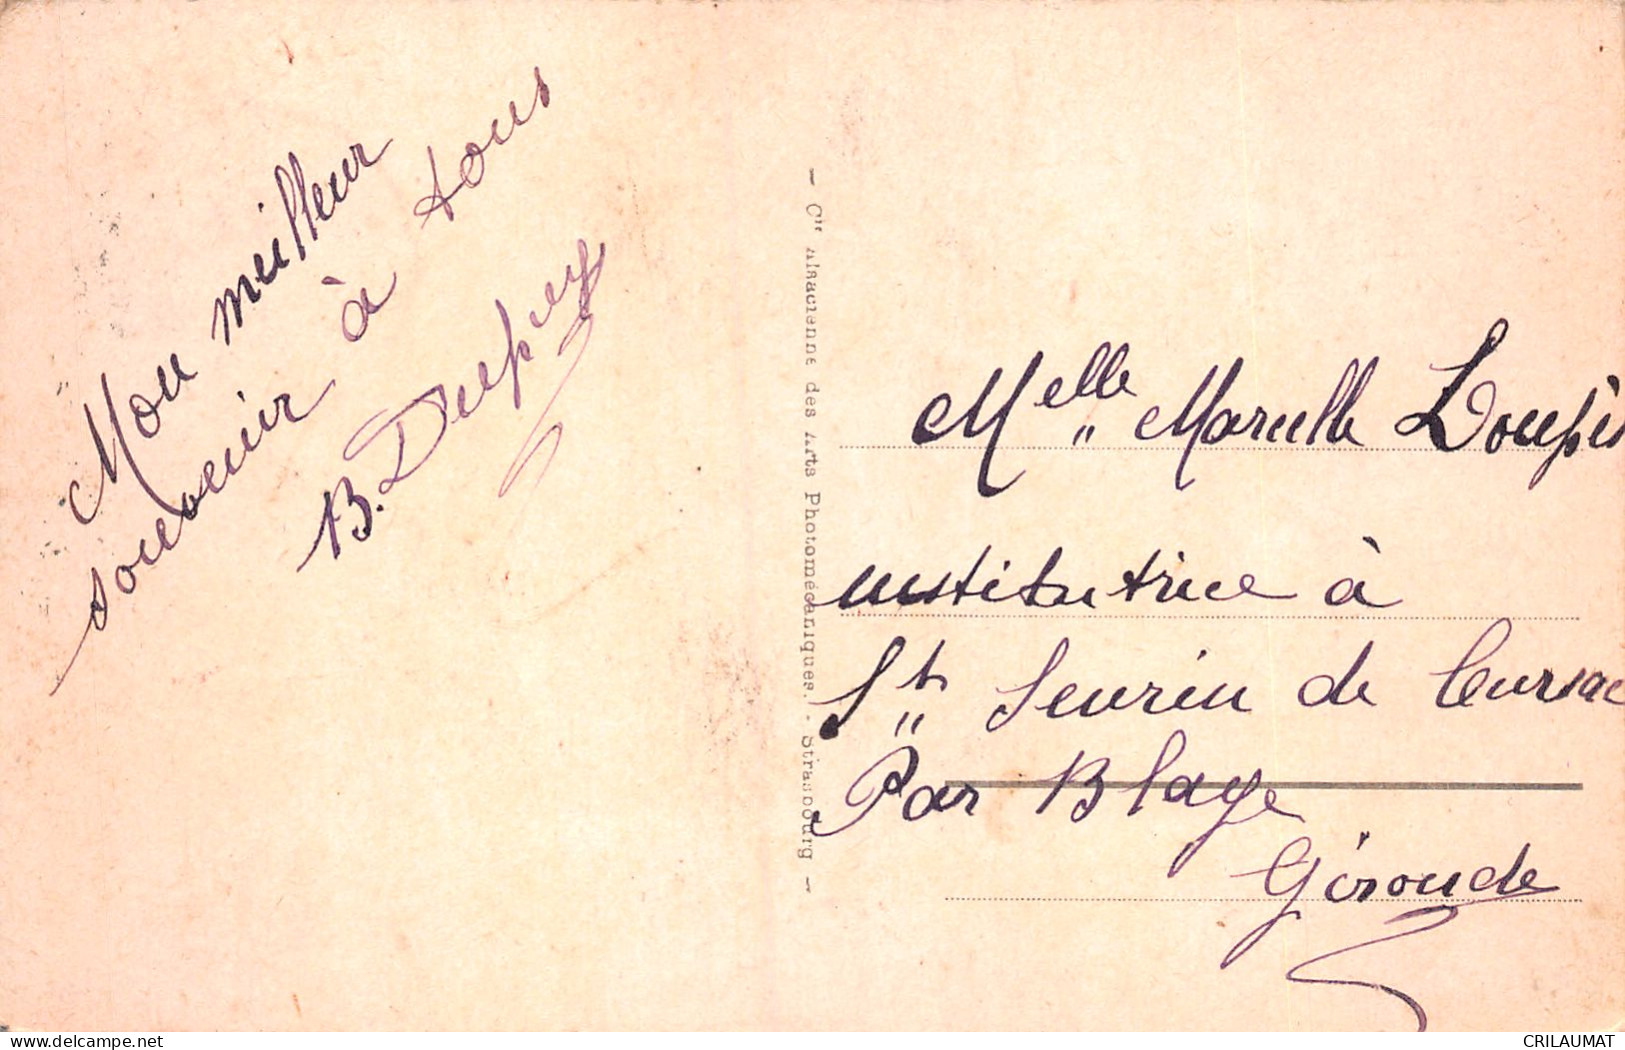 Mon meilleur
souvenir à tous
B. Dupuy
— Cie Alsacienne des Arts Photomécaniques. - Strasbourg —
Melle Marcelle Loupès
institutrice à
St Seurin de Cursac
Par Blaye
Gironde
delcampe.net
CRILAUMAT